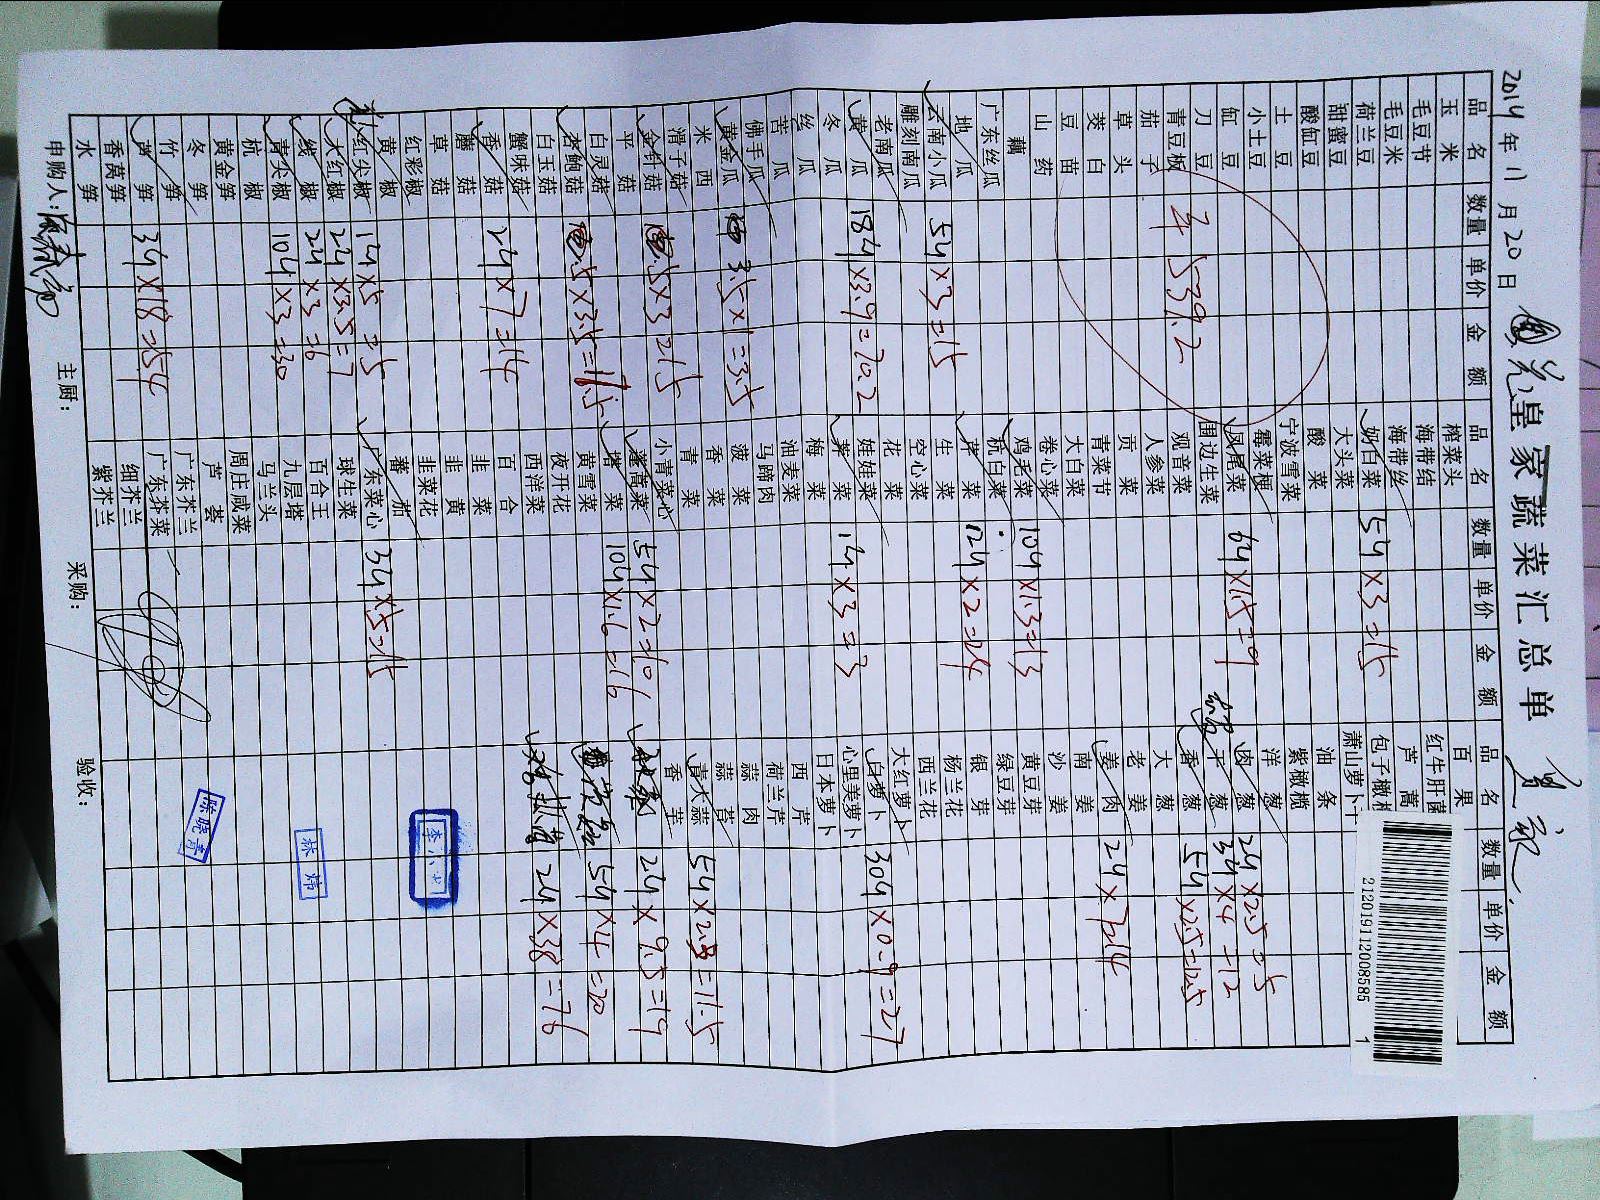 2014年11月20日 皇家蔬菜汇总单
品名 数量 单价 金额 品名 数量 单价 金额 品名 数量 单价 金额
玉米
毛豆节
毛豆米
荷兰豆
甜蜜豆
酸缸豆
土豆
小土豆
缸豆
刀豆
青豆板 539.2
茄子
草头
茭白
豆苗
山药
藕
广东丝瓜
地瓜
云南小瓜 5斤×3=15
雕刻南瓜
老南瓜
黄瓜 18斤×3.9=70.2
冬瓜
丝瓜
苦瓜
佛手瓜
黄金瓜 3.5×1=3.5
西米
滑子菇
金针菇 5×3=15
平菇
白灵菇
杏鲍菇 5×3.5=17.5
白玉菇
蟹味菇
香菇 2斤×7=14
蘑菇
草菇
红彩椒
黄椒
红尖椒 1斤×5=5
大红椒 2斤×3.5=7
线椒 2斤×3=6
青尖椒 10斤×3=30
杭椒
黄金笋
冬笋
竹笋
莴笋 3斤×18=54
香莴笋
水笋
榨菜头
海带结
海带丝
奶白菜 5斤×3=15
大头菜
酸菜
宁波雪菜
霉菜梗
凤尾菜 6斤×1.5=9
围边生菜
观音菜
人参菜
贡菜
青菜节
大白菜
卷心菜
鸡毛菜 10斤×1.3=13
杭白菜
芹菜 12斤×2=24
生菜
空心菜
花菜
娃娃菜
1斤×3=3
梅菜
油麦菜
马蹄肉
菠菜
香菜
青菜
小青菜心
蓬蒿菜 5斤×2=10
塔菜 10斤×1.6=16
黄雪菜
夜开花
西洋菜
百合
韭菜
韭黄
韭菜花
蕃茄
广东菜心 3斤×5=15
球生菜
百合王
九层塔
马兰头
周庄咸菜
芦荟
广东芥兰
广东芥菜
细芥兰
紫芥兰
百果
红牛肝菌
芦蒿
包子橄榄
萧山萝卜干
油条
紫橄榄
洋葱
肉葱 2斤×2.5=5
干葱 3斤×4=12
香葱 5斤×2.5=12.5
大葱
老姜
姜肉 2斤×7=14
南姜
沙姜
黄豆芽
绿豆芽
银芽
杨兰花
西兰花
大红萝卜
白萝卜 30斤×0.9=27
心里美萝卜
日本萝卜
西芹
荷兰芹
蒜肉
蒜苔
青大蒜 5斤×2.3=11.5
香芹
2斤×9.5=19
5斤×4=20
2斤×38=76
申购人: 主厨: 采购: 验收:
陈晓青
林炜
2120191120085851